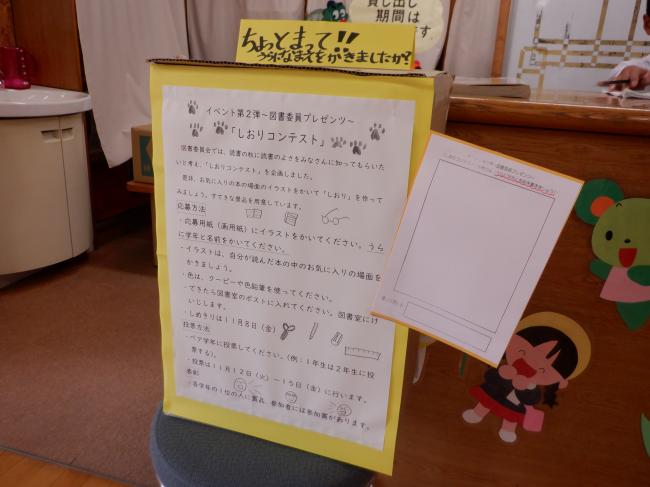 貸し出し
期間は
です
ちょっとまって!!
うらになまえをかきましたか?
イベント第2弾～図書委員プレゼンツ～
「しおりコンテスト」
図書委員会では、読書の秋に読書のよさをみなさんに知ってもらいた
いと考え、「しおりコンテスト」を企画しました。
是非、お気に入りの本の場面のイラストをかいて「しおり」を作って
みましょう。すてきな景品を用意しています。
応募方法
・応募用紙(画用紙)にイラストをかいてください。うら
に学年と名前をかいてください。
・イラストは、自分が読んだ本の中のお気に入りの場面を
かきましょう。
・色は、クーピーや色鉛筆を使ってください。
・できたら図書室のポストに入れてください。図書室にけ
いじします。
・しめきりは11月8日(金)
投票方法
・ペア学年に投票してください。(例:1年生は2年生に投
票する)。
・投票は11月12日(火)～15日(金)に行います。
表彰
・各学年の1位の人に賞品 参加者には参加賞があります。